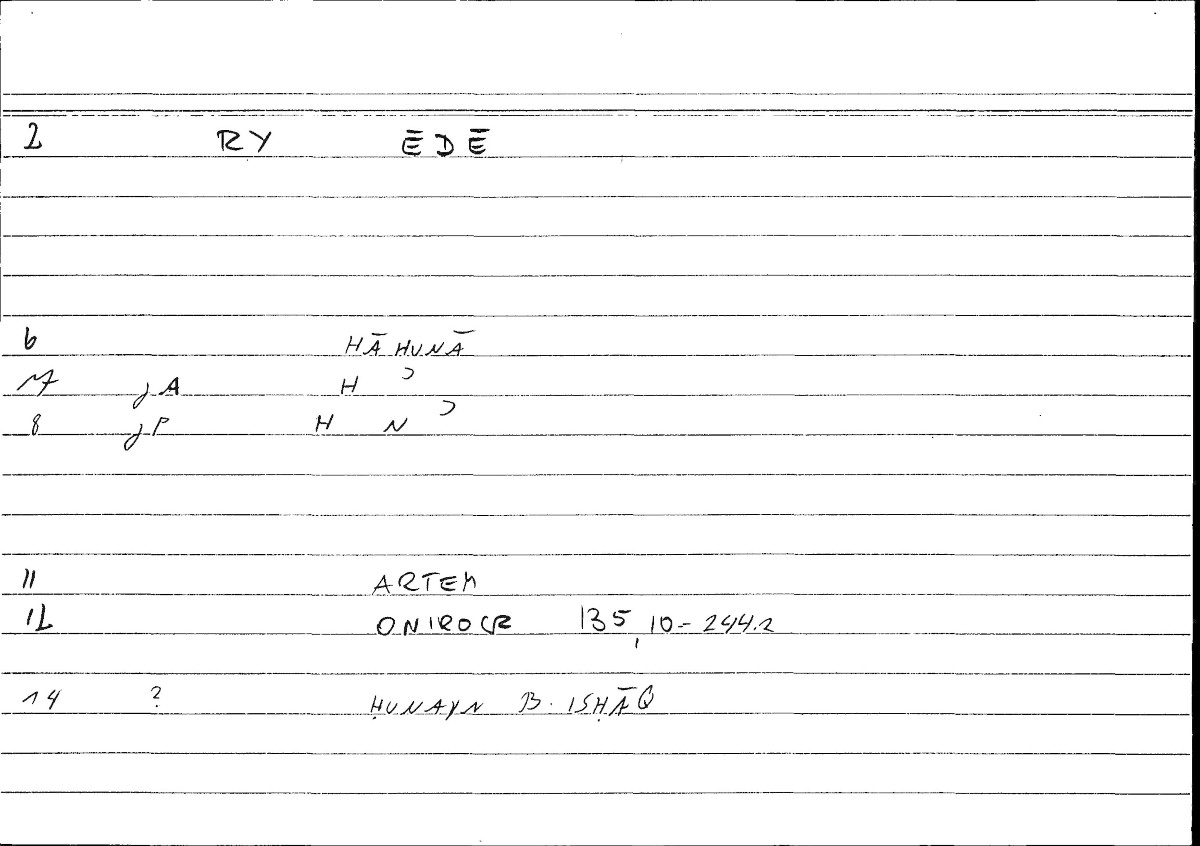 2 RY ĒDĒ
6 HĀHUNĀ
7 jA H ʾ
8 jP H N ʾ
11 ARTEM
12 ONIROCR 135,10-244.2
14 ? ḤUNAYN B. ISḤĀQ